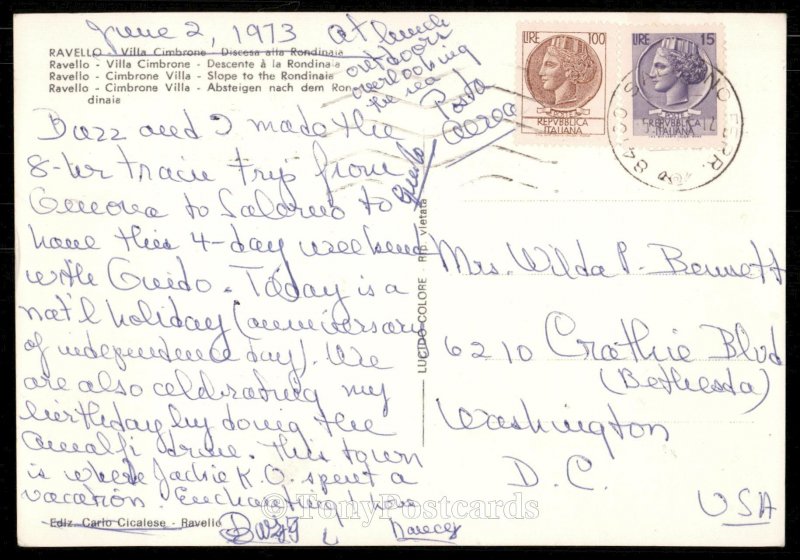 June 2, 1973
at lunch
outdoors
overlooking
the sea
Posta
aerea
RAVELLO - Villa Cimbrone - Discesa alla Rondinaia
Ravello - Villa Cimbrone - Descente à la Rondinaia
Ravello - Cimbrone Villa - Slope to the Rondinaia
Ravello - Cimbrone Villa - Absteigen nach dem Ron-
dinaia
Buzz and I made the
8-hr train trip from
Genova to Salerno to
have this 4-day weekend
with Guido. Today is a
nat'l holiday (anniversary
of independence day). We
are also celebrating my
birthday by doing the
Amalfi drive. This town
is where Jackie K. O. spent a
vacation. Enchanting! Love
Guido
Buzz
Ediz. Carlo Cicalese - Ravello
LUCIDO-COLORE - Rip. vietata
LIRE 100
POSTE
REPVBBLICA
ITALIANA
LIRE 15
POSTE
REPVBBLICA
ITALIANA
84100 FERR.
Mrs. Wilda P. Bennett
6210 Crathie Blvd
(Bethesda)
Washington
D. C.
USA
© TonyPostcards